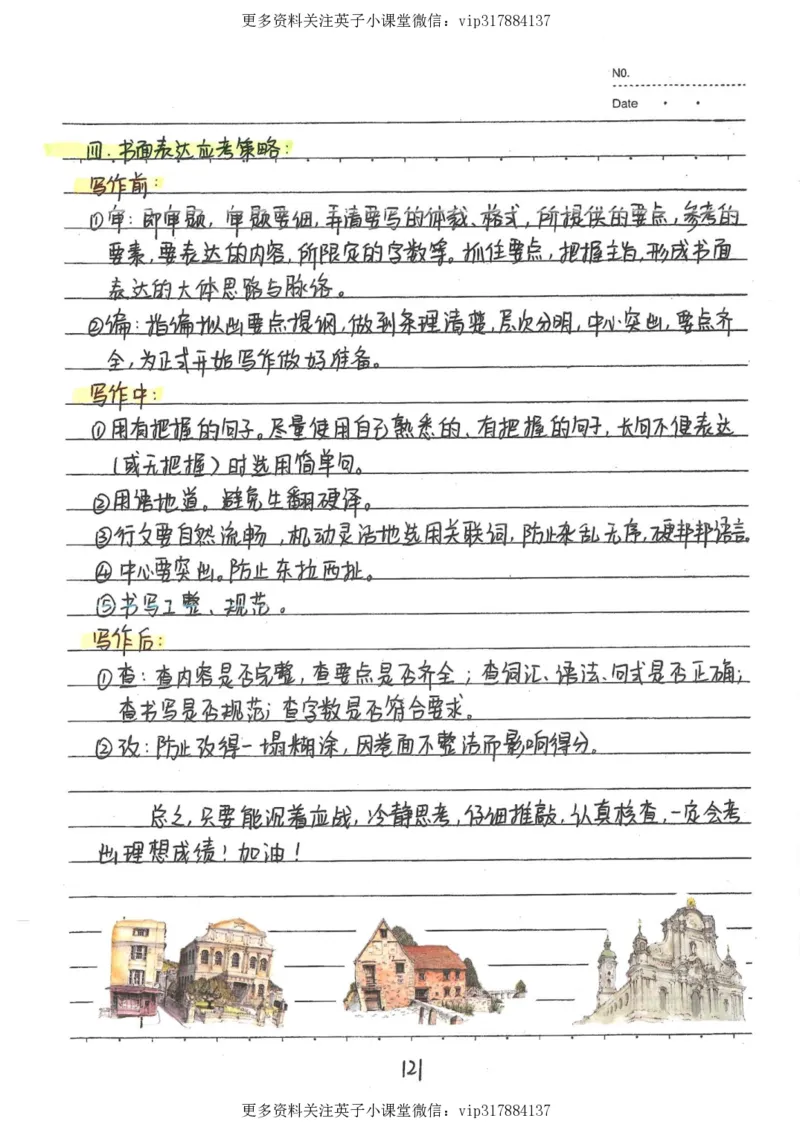 更多资料关注英子小课堂微信：vip317884137
NO.
Date
四.书面表达应考策略：
写作前：
①审：即审题，审题要细，弄清要写的体裁、格式，所提供的要点，参考的
要素，要表达的内容，所限定的字数等。抓住要点，把握主旨，形成书面
表达的大体思路与脉络。
②编：指编拟出要点提纲，做到条理清楚，层次分明，中心突出，要点齐
全，为正式开始写作做好准备。
写作中：
①用有把握的句子。尽量使用自己熟悉的、有把握的句子，长句不便表达
（或无把握）时选用简单句。
②用语地道。避免生翻硬译。
③行文要自然流畅，机动灵活地选用关联词，防止杂乱无序，硬邦邦语言。
④中心要突出。防止东拉西扯。
⑤书写工整、规范。
写作后：
①查：查内容是否完整，查要点是否齐全；查词汇、语法、句式是否正确；
查书写是否规范；查字数是否符合要求。
②改：防止改得一塌糊涂，因卷面不整洁而影响得分。
总之，只要能沉着应战，冷静思考，仔细推敲，认真核查，一定会考
出理想成绩！加油！
121
更多资料关注英子小课堂微信：vip317884137